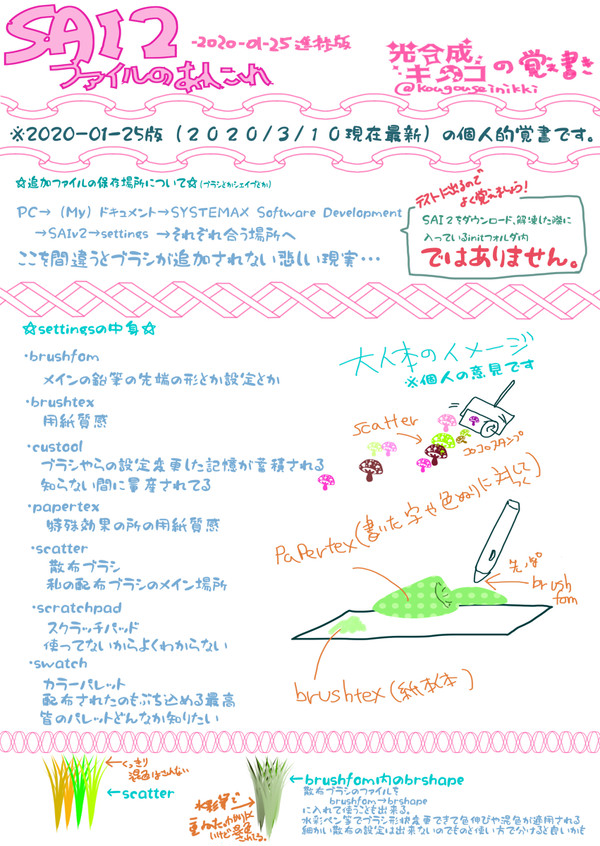 SAI2
ファイルのあれこれ
-2020-01-25進捗版
光合成
キノコの覚え書き
@kougouseinikki
※2020-01-25版(2020/3/10現在最新)の個人的覚書です。
☆追加ファイルの保存場所について☆(ブラシとかシェイプとか)
PC→(My)ドキュメント→SYSTEMAX Software Development
→SAIv2→settings →それぞれ合う場所へ
ここを間違うとブラシが追加されない悲しい現実・・・
テストに出るので
よく覚えましょう!
SAI2をダウンロード、解凍した際に
入っているinitフォルダ内
ではありません。
☆settingsの中身☆
・brushfom
メインの鉛筆の先端の形とか設定とか
・brushtex
用紙質感
・custool
ブラシやらの設定変更した記憶が蓄積される
知らない間に量産されてる
・papertex
特殊効果の所の用紙質感
・scatter
散布ブラシ
私の配布ブラシのメイン場所
・scratchpad
スクラッチパッド
使ってないからよくわからない
・swatch
カラーパレット
配布されたのもぶち込める最高
皆のパレットどんなか知りたい
大体のイメージ
※個人の意見です
scatter
コロコロスタンプ
Papertex(書いた字や色ぬりに対して
つく)
先っぽ
brush
fom
brushtex(紙本体)
くっきり
混色はされない
←scatter
水彩筆で
←brushfom内のbrshape
散布ブラシのファイルを
brushfom→brshape
に入れて使うことも出来る。
水彩ペン等でブラシ形状変更できて色伸びや混色が適用される
細かい散布の設定は出来ないのでものと使い方で分けると良いかも